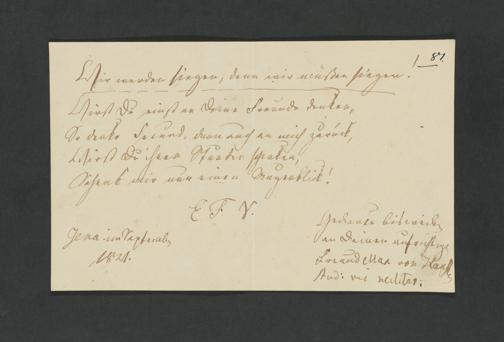 81.
Wir werden siegen, denn wir müssen siegen.
Wirst Du einst an Deine Freunde denken,
So denke Freund, dann auch an mich zurück,
Wirst Du ihnen Stunden schenken,
Schenk mir nur einen Augenblick!
E. F. V.
Jena im September
1821.
Gedenke bisweilen
an Deinen aufrichtigen
Freund Max von